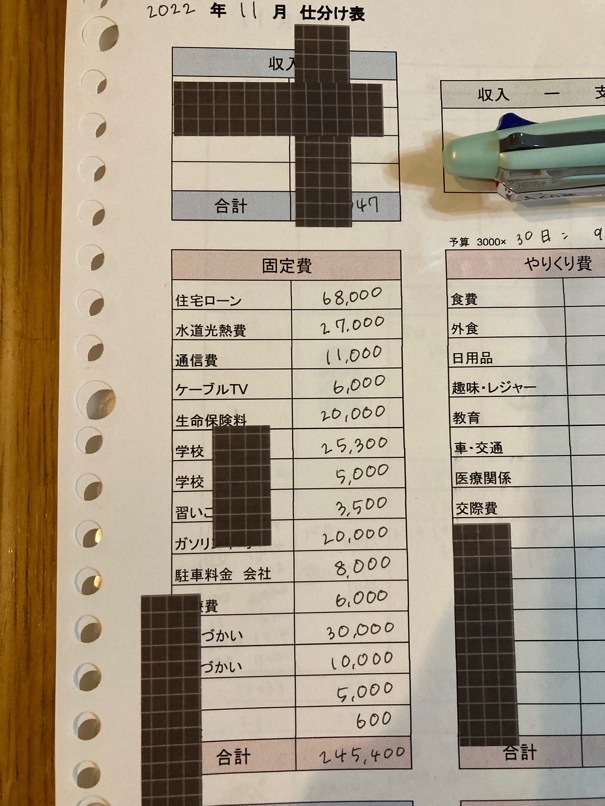 2022 年 11 月 仕分け表
収入
合計 47
収入 － 支
予算 3000× 30日= 9
固定費
住宅ローン 68,000
水道光熱費 27,000
通信費 11,000
ケーブルTV 6,000
生命保険料 20,000
学校 25,300
学校 5,000
習い 3,500
ガソリン 20,000
駐車料金 会社 8,000
費 6,000
づかい 30,000
づかい 10,000
5,000
600
合計 245,400
やりくり費
食費
外食
日用品
趣味・レジャー
教育
車・交通
医療関係
交際費
合計